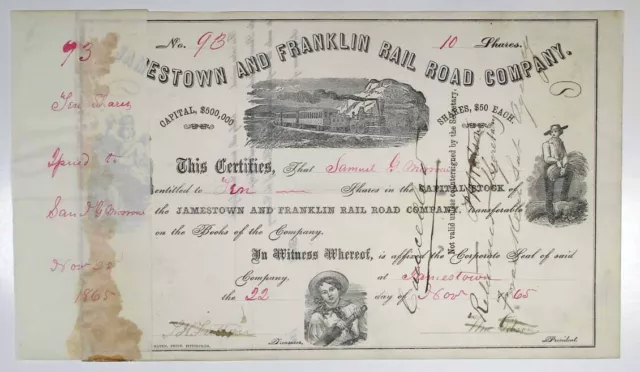 93
Ten Shares
Issued to
Sam'l G
Nov 22
1865
No. 93
10 Shares.
JAMESTOWN AND FRANKLIN RAIL ROAD COMPANY.
CAPITAL, $500,000
SHARES, $50 EACH.
This Certifies, That Samuel G
entitled to Ten Shares in the CAPITAL STOCK of
the JAMESTOWN AND FRANKLIN RAIL ROAD COMPANY, transferable
on the Books of the Company.
In Witness Whereof, is affixed the Corporate Seal of said
Company. at Jamestown
the 22 day of Nov 1865
Treasurer.
President.
Not valid unless countersigned by the Secretary.
Secretary
Cancelled